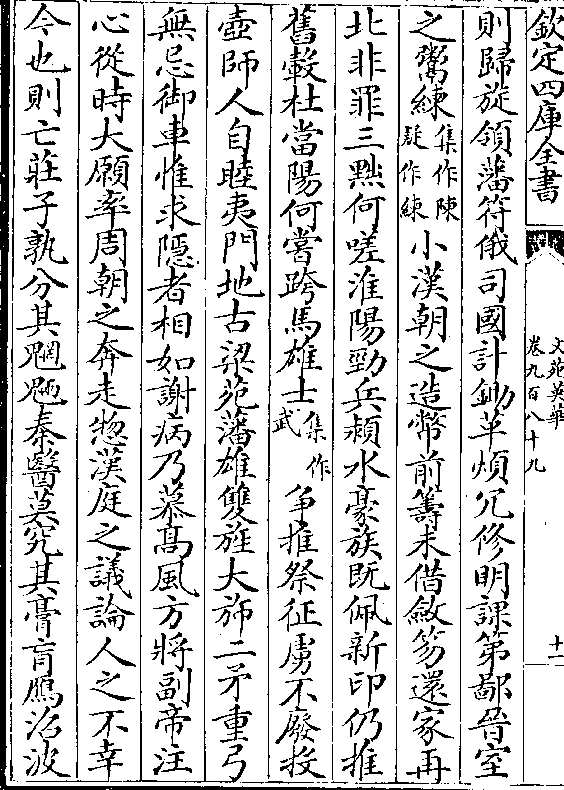 欽定四庫全書
文苑英華
卷九百八十九
十一
則歸旋領藩符俄司國計鋤革煩冗修明課第鄙晉室
之鬻練集作陳疑作練小漢朝之造幣前籌未借斂笏還家再
北非罪三黜何嗟淮陽勁兵潁水豪族既佩新印仍推
舊轂杜當陽何嘗跨馬雄士集作武爭推祭征虜不廢投
壺師人自睦夷門地古梁苑藩雄雙旌大旆二矛重弓
無忌御車惟求隱者相如謝病乃慕髙風方將副帝注
心從時大願率周朝之奔走惣漢庭之議論人之不幸
今也則亡莊子孰分其魍魎秦醫莫究其膏肓鴈沼波